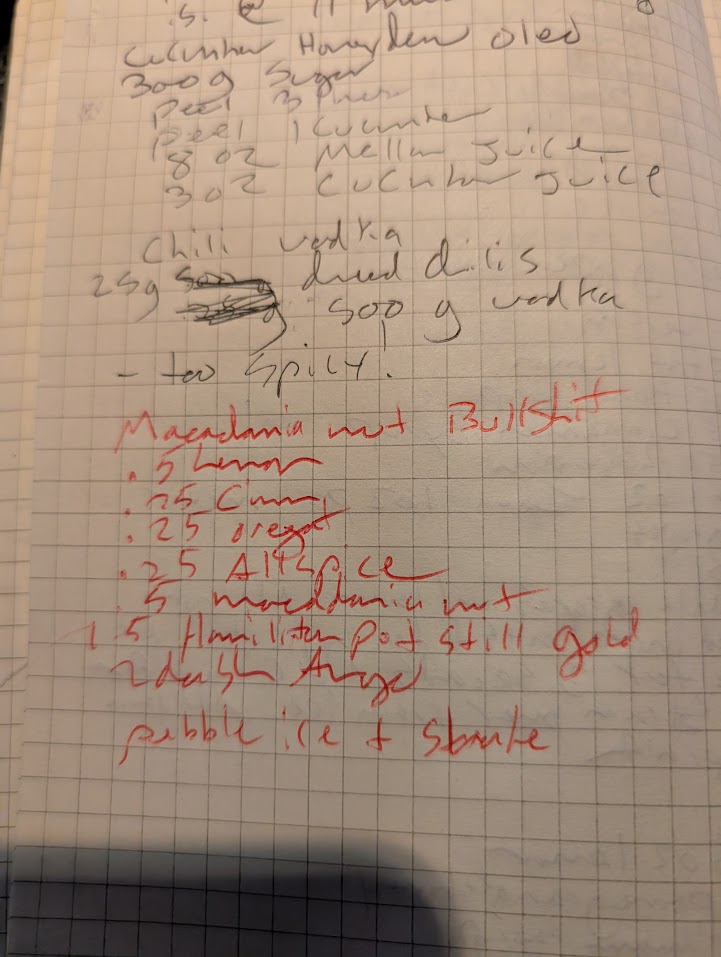 Cucumber Honeydew oleo
300g Sugar
Peel 3
Peel 1 Cucumber
8 oz Mellon Juice
3 oz Cucumber Juice
Chili vodka
25g dried chilis
500 g vodka
- too Spicy!
Macadamia nut Bullshit
.5 Lemon
.25
.25 orgeat
.25 Allspice
.5 macadamia nut
1.5 Hamilton pot still gold
2 dash Ango
pebble ice +